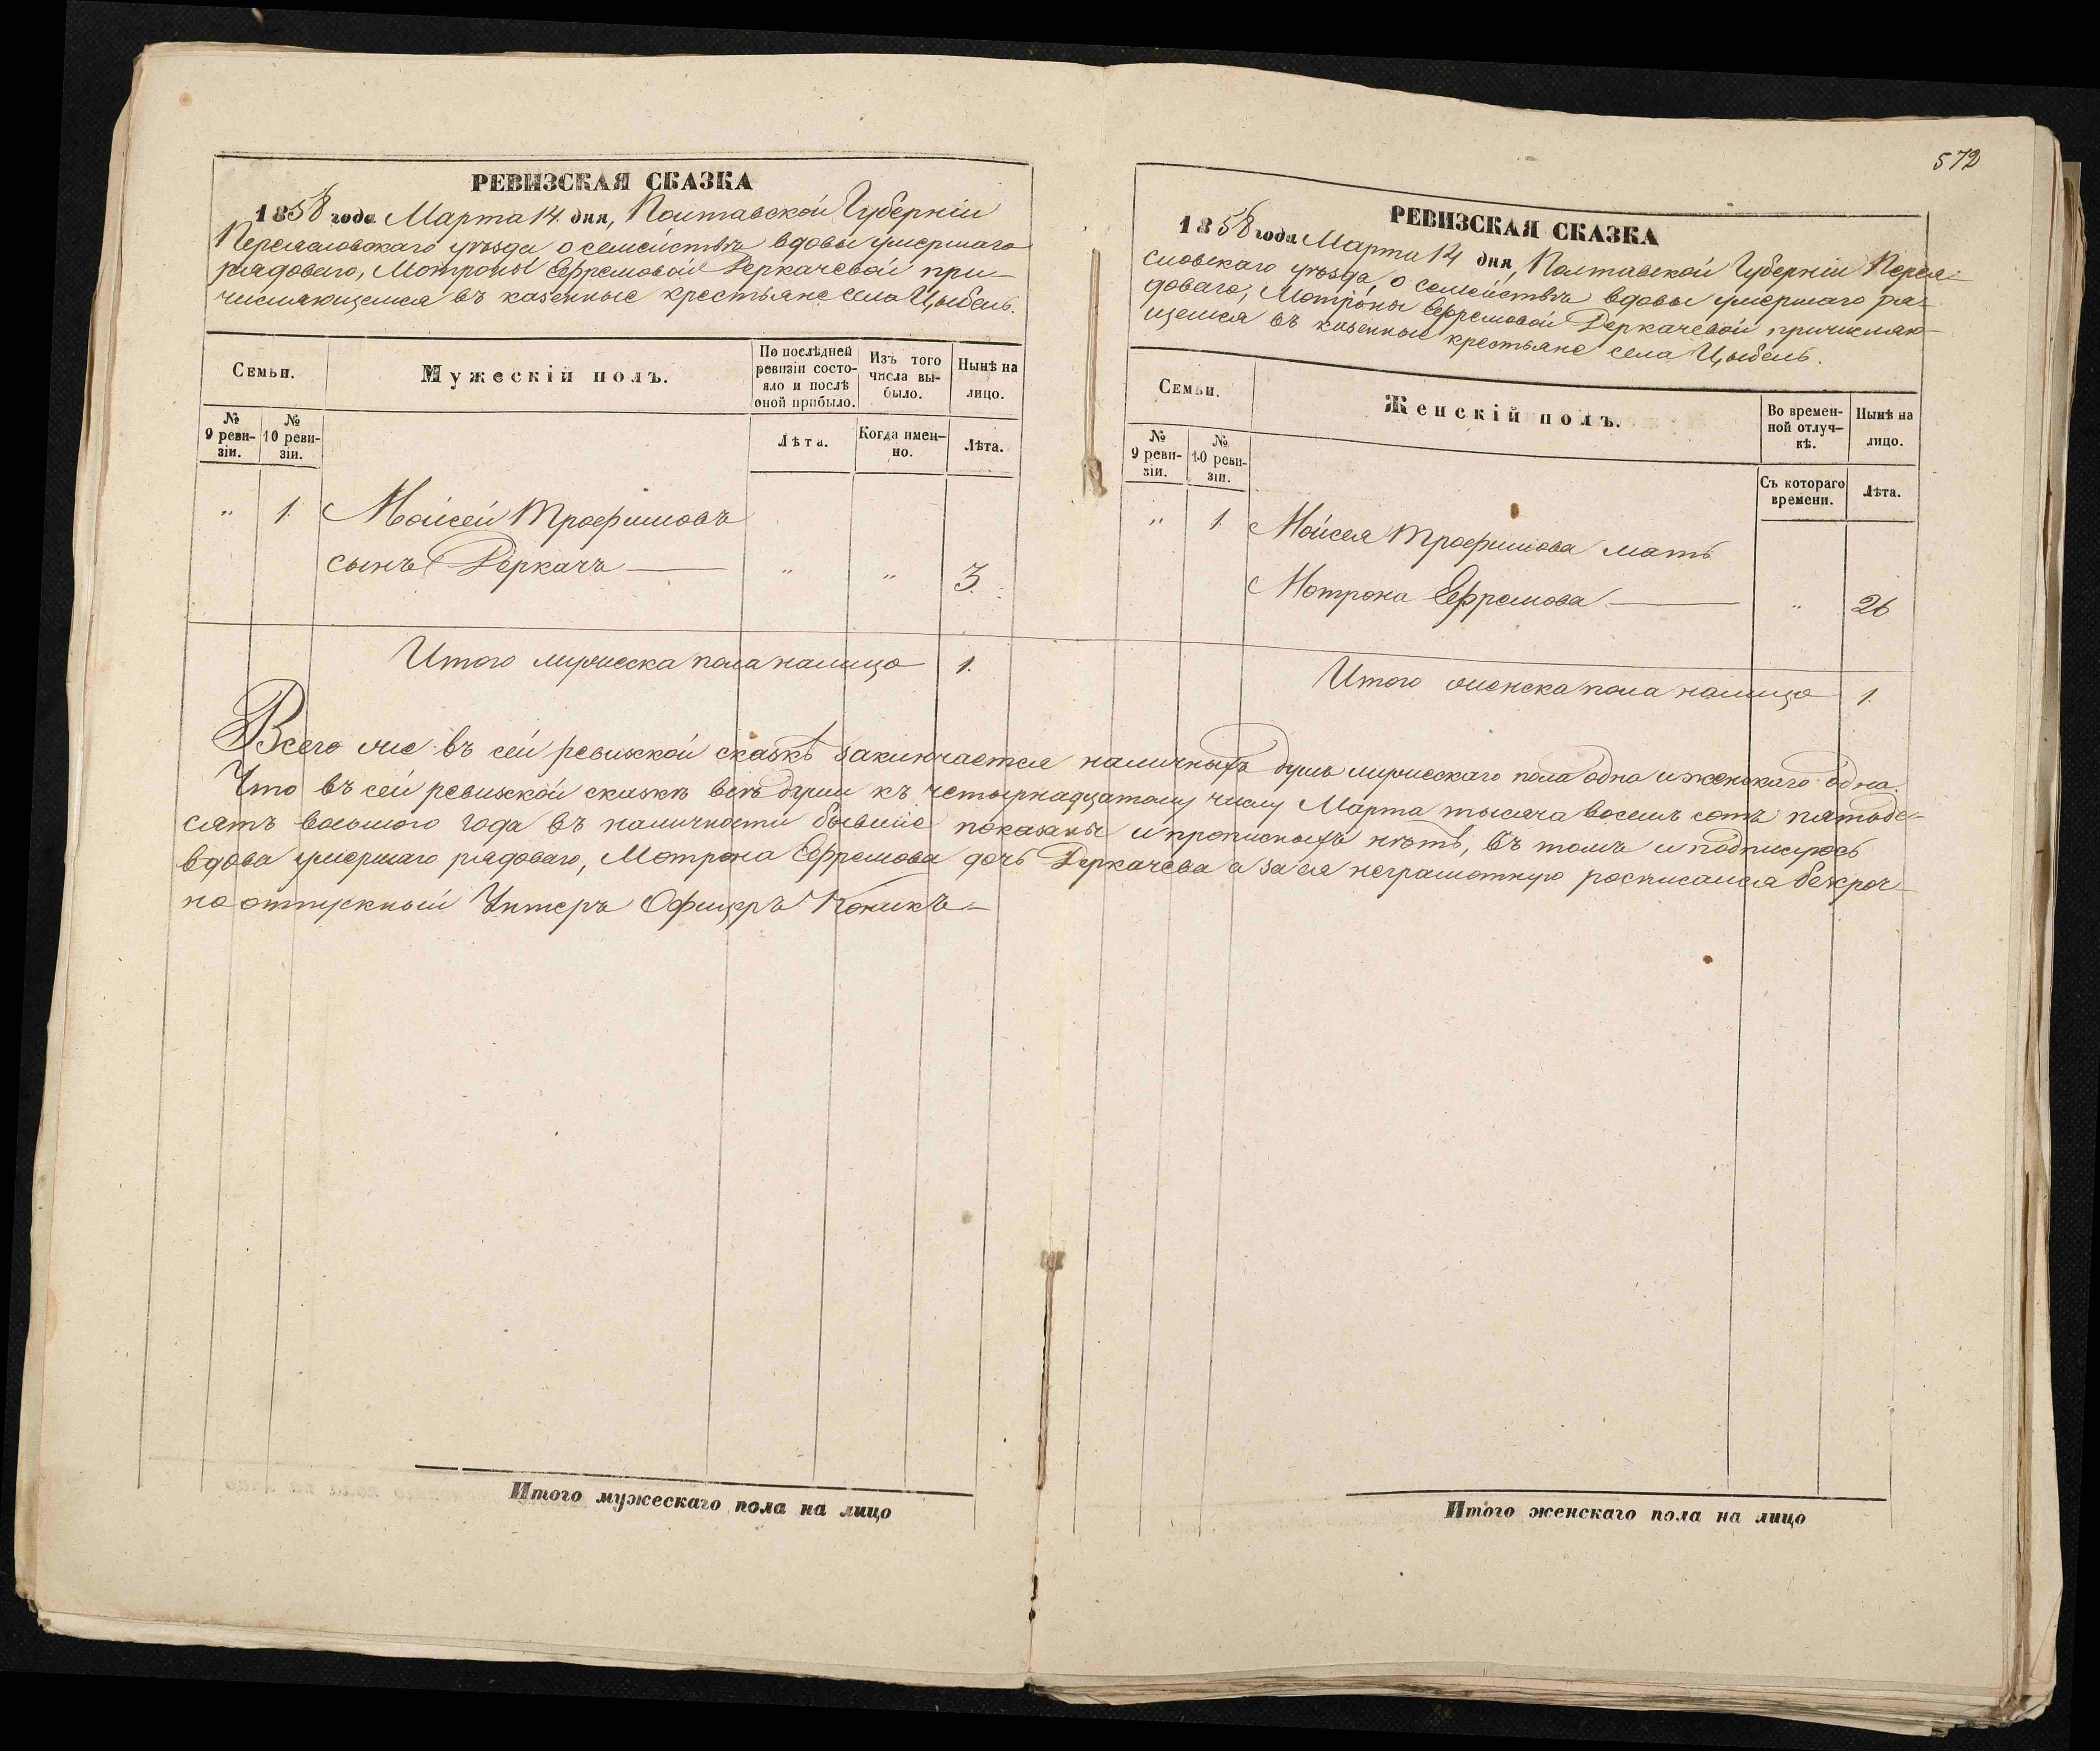 572
РЕВИЗСКАЯ СКАЗКА
1858 года Марта 14 дня, Полтавской Губерніи
Переяславскаго уѣзда о семействѣ вдовы умершаго
рядоваго, Мотроны Ефремовой Деркачевой при-
числяющемся въ казенные крестьяне села Цыбель.
Семьи.
Мужескій полъ.
По послѣдней
ревизіи состо-
яло и послѣ
оной прибыло.
Изъ того
числа вы-
было.
Нынѣ на
лицо.
№
9 реви-
зіи.
№
10 реви-
зіи.
Лѣта.
Когда имен-
но.
Лѣта.
" 1. Мойсей Трофимовъ
сынъ Деркачъ — " " 3.
Итого мужеска пола налицо 1.
РЕВИЗСКАЯ СКАЗКА
1858 года Марта 14 дня, Полтавской Губерніи Перея-
словскаго уѣзда, о семействѣ вдовы умершаго ря-
доваго, Мотроны Ефремовой Деркачевой причисляю-
щемся въ казенные крестьяне села Цыбель.
Семьи.
Женскій полъ.
Во времен-
ной отлуч-
кѣ.
Нынѣ на
лицо.
№
9 реви-
зіи.
№
10 реви-
зіи.
Съ котораго
времени.
Лѣта.
" 1. Мойсея Трофимова мать
Мотрона Ефремова — " 26
Итого женска пола налицо 1.
Всего же въ сей ревизской сказкѣ заключается наличныхъ душъ мужескаго пола одна и женскаго одна.
Что въ сей ревизской сказкѣ всѣ души къ четырнадцатому числу Марта тысяча восемь сотъ пятьде-
сятъ восьмого года въ наличности бывшіе показаны и прописныхъ нѣтъ, въ томъ и подписуюсь
вдова умершаго рядоваго, Мотрона Ефремова дочь Деркачева а за ея неграмотную росписался безсроч-
но отпускный Унтеръ Офицеръ Коникъ
Итого мужескаго пола на лицо
Итого женскаго пола на лицо